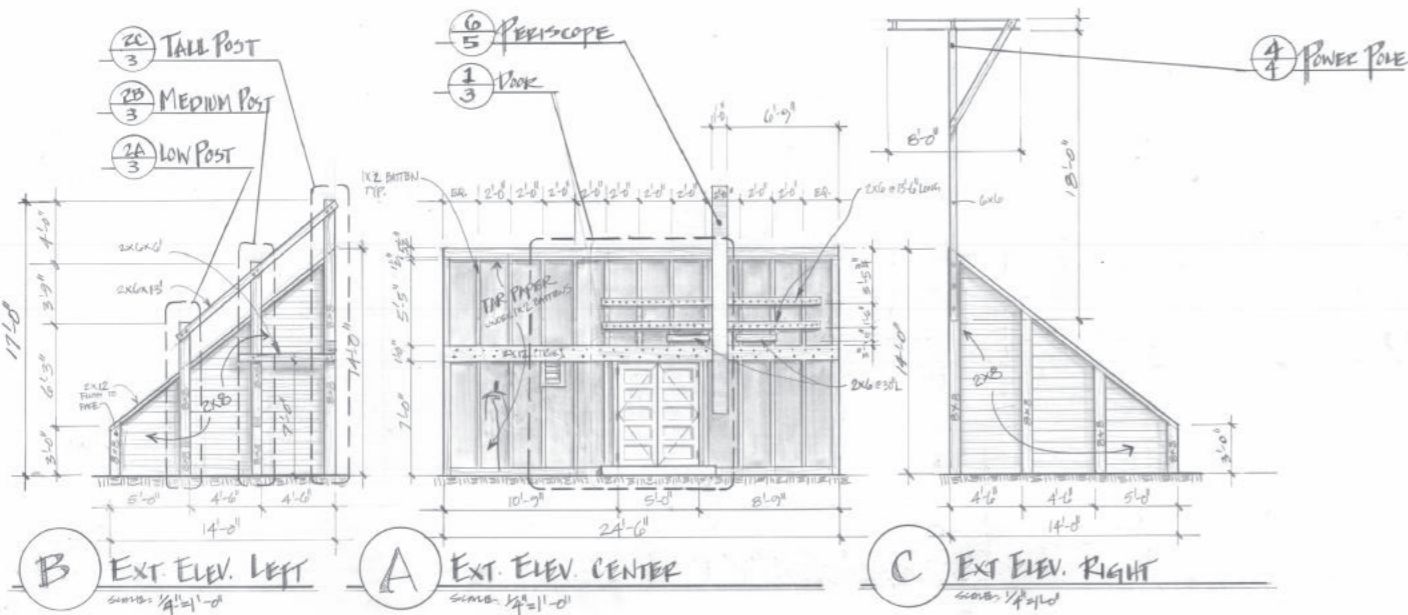 2C
3
TALL POST
2B
3
MEDIUM POST
2A
3
LOW POST
2x6x6'
2x6x13'
2x12
FLUSH TO
FACE
2x8
8x8
8x8
8x8
8x8
17'-0"
4'-0"
3'-9"
6'-3"
3'-0"
14'-0"
7'-0"
5'-0"
4'-6"
4'-6"
14'-0"
B
EXT. ELEV. LEFT
SCALE: 1/4"=1'-0"
6
5
PERISCOPE
1
3
DOOR
1'-0"
6'-9"
1x2 BATTEN
TYP.
EQ.
2'-0"
2'-0"
2'-0"
2'-0"
2'-0"
2'-0"
2'-0"
2'-0"
2'-0"
2'-0"
EQ.
2x6 @ 13'-6" LONG
TAR PAPER
UNDER 1x2 BATTENS
5'-5"
1'-0"
7'-0"
1'-6"
10'-9"
5'-0"
8'-9"
24'-6"
A
EXT. ELEV. CENTER
SCALE: 1/4"=1'-0"
4
4
POWER POLE
8'-0"
18'-0"
6x6
14'-0"
2x8
8x8
8x8
8x8
3'-0"
4'-6"
4'-6"
5'-0"
14'-0"
C
EXT ELEV. RIGHT
SCALE: 1/4"=1'-0"